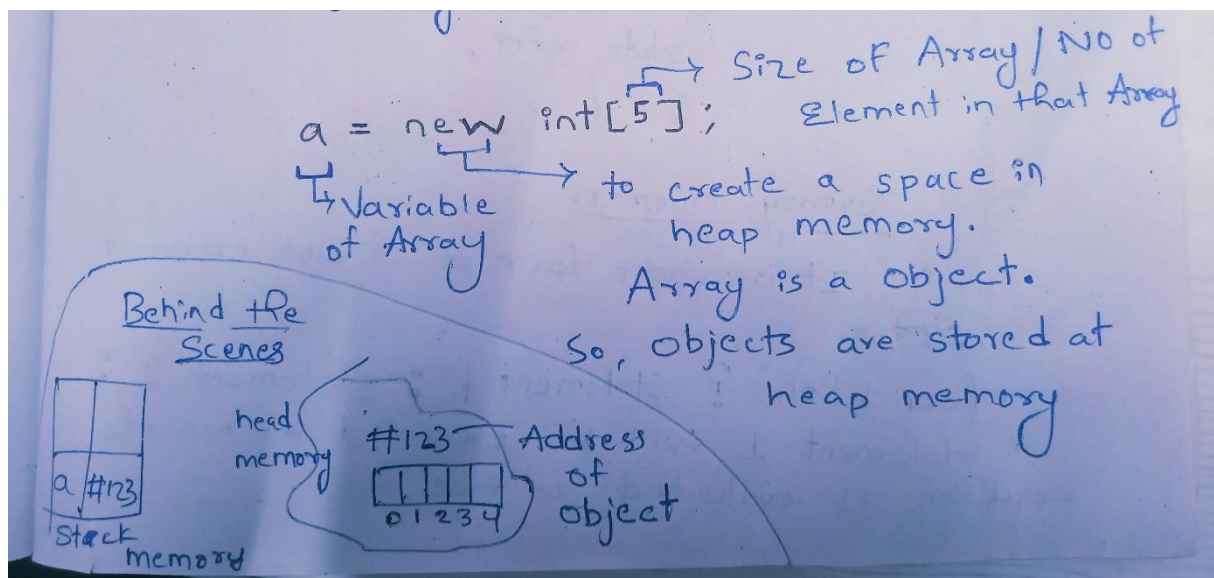 Size of Array / No of
Element in that Array
a = new int[5];
Variable
of Array
to create a space in
heap memory.
Array is a object.
So, objects are stored at
heap memory
Behind the
Scenes
a #123
Stack
memory
head
memory
#123
0 1 2 3 4
Address
of
object